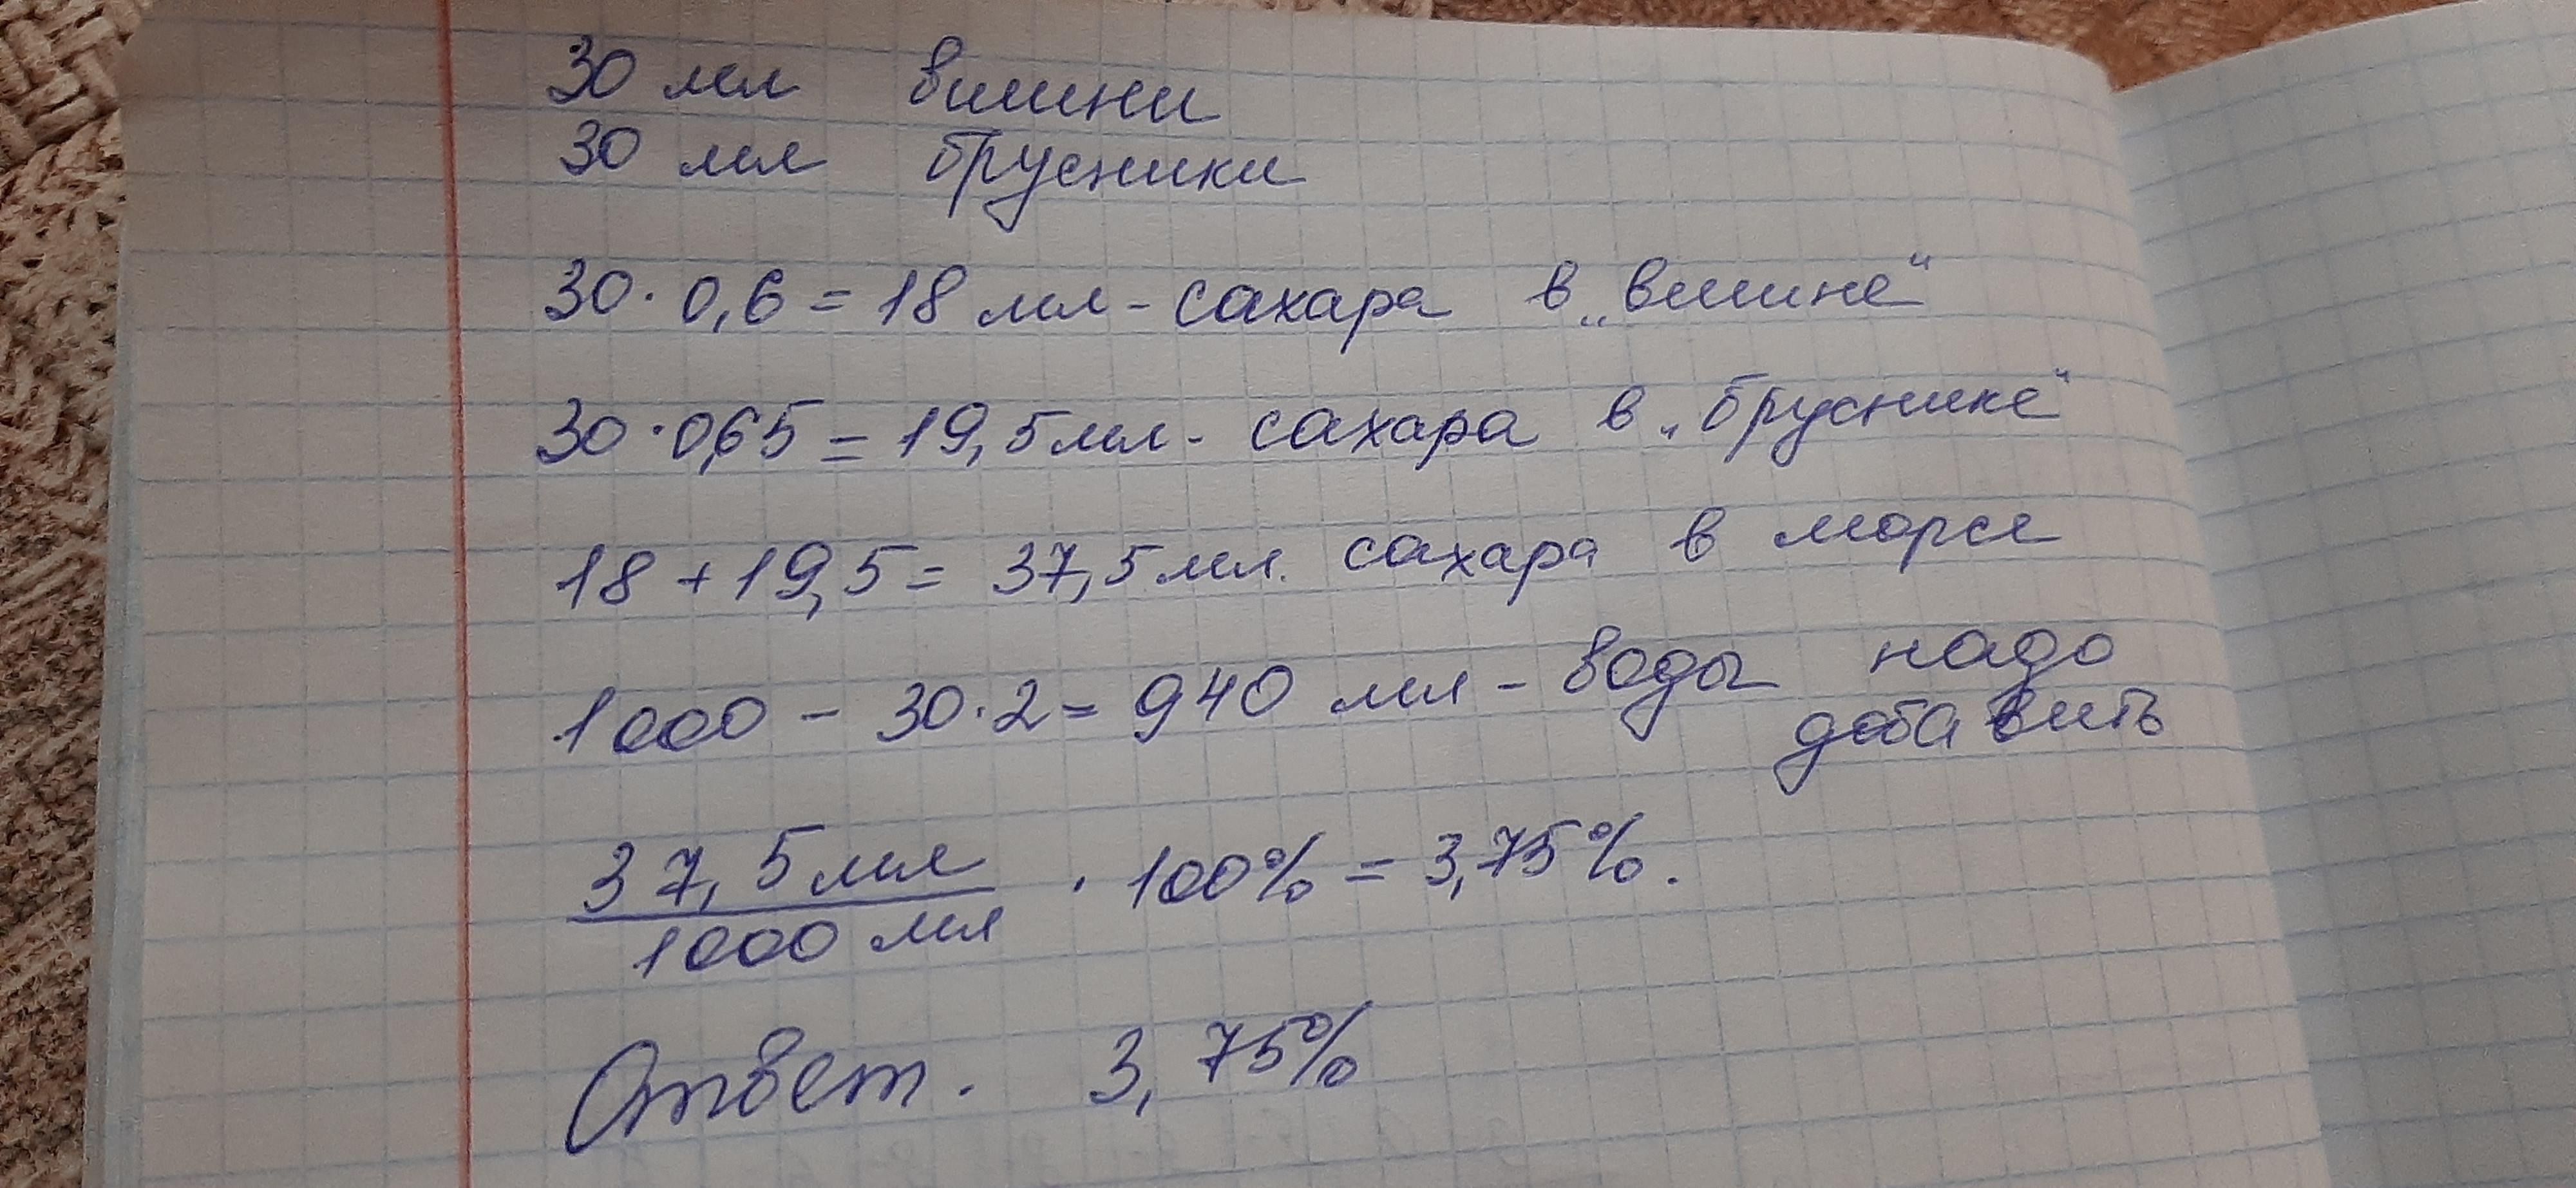 30 мл вишни
30 мл брусники
30 · 0,6 = 18 мл - сахара в „вишне“
30 · 0,65 = 19,5 мл - сахара в „бруснике“
18 + 19,5 = 37,5 мл. сахара в морсе
1000 - 30 · 2 = 940 мл - воды надо
добавить
37,5 мл
1000 мл
· 100% = 3,75%.
Ответ. 3,75%